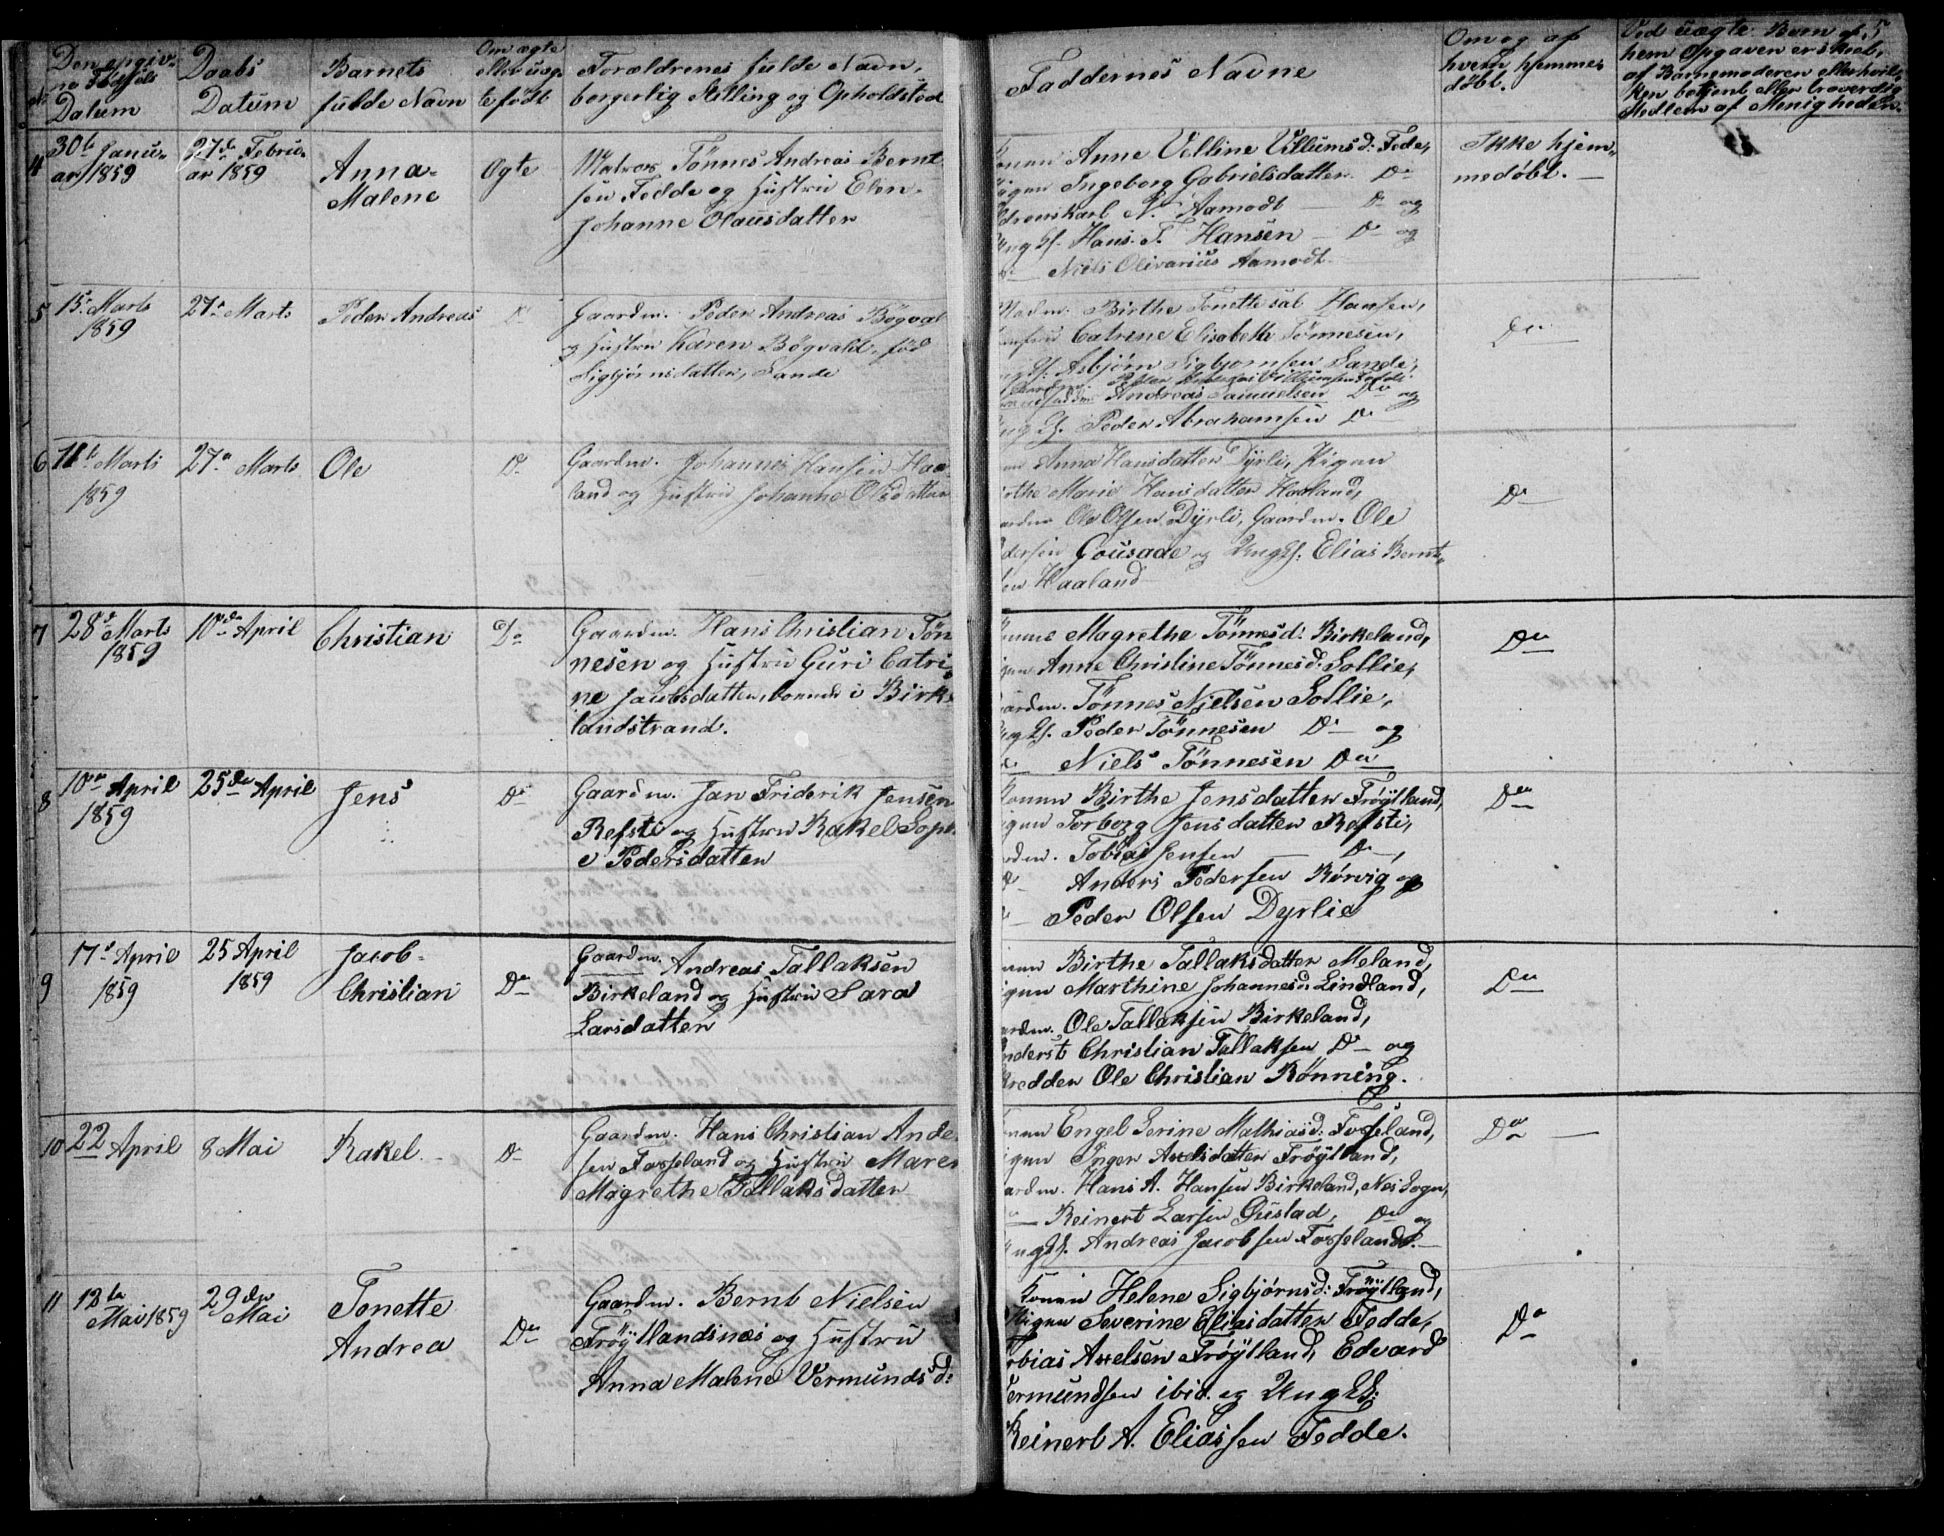 Den opgiv-
ne Fødsels
Datum
Daabs
Datum
Barnets
fulde Navn
Om ægte
eller uæg-
te født
Forældrenes fulde Navn,
borgerlig Stilling og Opholdsted
Faddernes Navne
Om og af
hvem hjemme-
døbt.
5
Ved uægte Børn af
hem Opgaven er skeet,
af Barnemoderen eller hvil-
ken betjent eller troværdig
Medlem af Menigheden.
4
30te Janu-
ar 1859
27de Febru-
ar 1859
Anna-
Malene
Ogte
Matros Tönnes Andreas Bernt
sen Fedde og Hustru Elen-
Johanne Olausdatter
Anne Velline Villumsd: Fede,
Ingeborg Gabrielsdatter Do
N. Aamodt Do og
Hans T. Hansen Do og
Niels Olivarius Aamodt
Ikke hjem-
medøbt.
5
15 Marts
1859
27 Marts
Peder Andreas
Do
Gaardm. Peder Andreas Bøgval
og Hustru Karen Bøgvald, født
Sigbjørnsdatter, Sande
Madm. Birthe Tonette sal. Hansen,
Catrine Elisabeth Tönnesen,
Asbjørn Sigbjørnsen Sande,
Andreas Samuelsen Do og
Peder Abrahamsen Do
Do
6
11te Marts
1859
27 Marts
Ole
Do
Gaardm. Johannes Hansen Haa-
land og Hustru Johanne Olsdatter
Anna Hansdatter Dyrli, Pigen
Marie Hansdatter Haaland,
Ole Olsen Dyrli, Gaardm. Ole
Gousade og Ungk: Elias Bernt-
Haaland
Do
7
28 Marts
1859
10de April
Christian
Do
Gaardm. Hans Christian Tön
nesen og Hustru Guri Catri
ne Jacobsdatter, boende i Birke
landstrand.
Magrethe Tönnesd: Birkeland,
Anne Christine Tönnesd: Sollie,
Tönnes Nielsen Sollie,
Peder Tönnesen Do og
Niels Tönnesen Do
Do
8
10de April
1859
25de April
Jens
Do
Gaardm. Jan Friderik Jensen
Refsti og Hustru Rakel Soph
e Pedersdatter
Konen Birthe Jensdatter Frøytland,
Torborg Jensdatter Refsti,
Tobias Jensen Do,
Anders Pedersen Rørvig og
Peder Olsen Dyrlie
Do
9
17 April
1859
25 April
1859
Jacob-
Christian
Do
Gaardm. Andreas Tallaksen
Birkeland og Hustru Sara
Larsdatter
Birthe Tallaksdatter Meland,
Marthine Johannesd: Lindland,
Ole Tallaksen Birkeland,
Christian Tallaksen Do og
Ole Christian Rønning.
Do
10
22 April
8 Mai
Rakel
Do
Gaardm. Hans Christian Ande
sen Fosseland og Hustru Maren
Magrethe Tallaksdatter
Engel Serine Mathiasd: Fosseland,
Inger Axelsdatter Frøytland,
Hans A. Hansen Birkeland, Nes Sogn,
Reinert Larsen Gustad, Do og
Andreas Jacobsen Fosseland.
Do
11
12te
Mai 1859
29de
Mai
Tonette
Andrea
Do
Gaardm. Bernt Nielsen
Frøytlandsnæs og Hustru
Anna Malene Vermundsd:
Konen Helene Sigbjørnsd: Frøytland,
Pigen Severine Eliasdatter Fedde,
Tobias Axelsen Frøytland, Edvard
Vermundsen ibid. og Ungk:
Reinert A. Eliassen Fedde.
Do